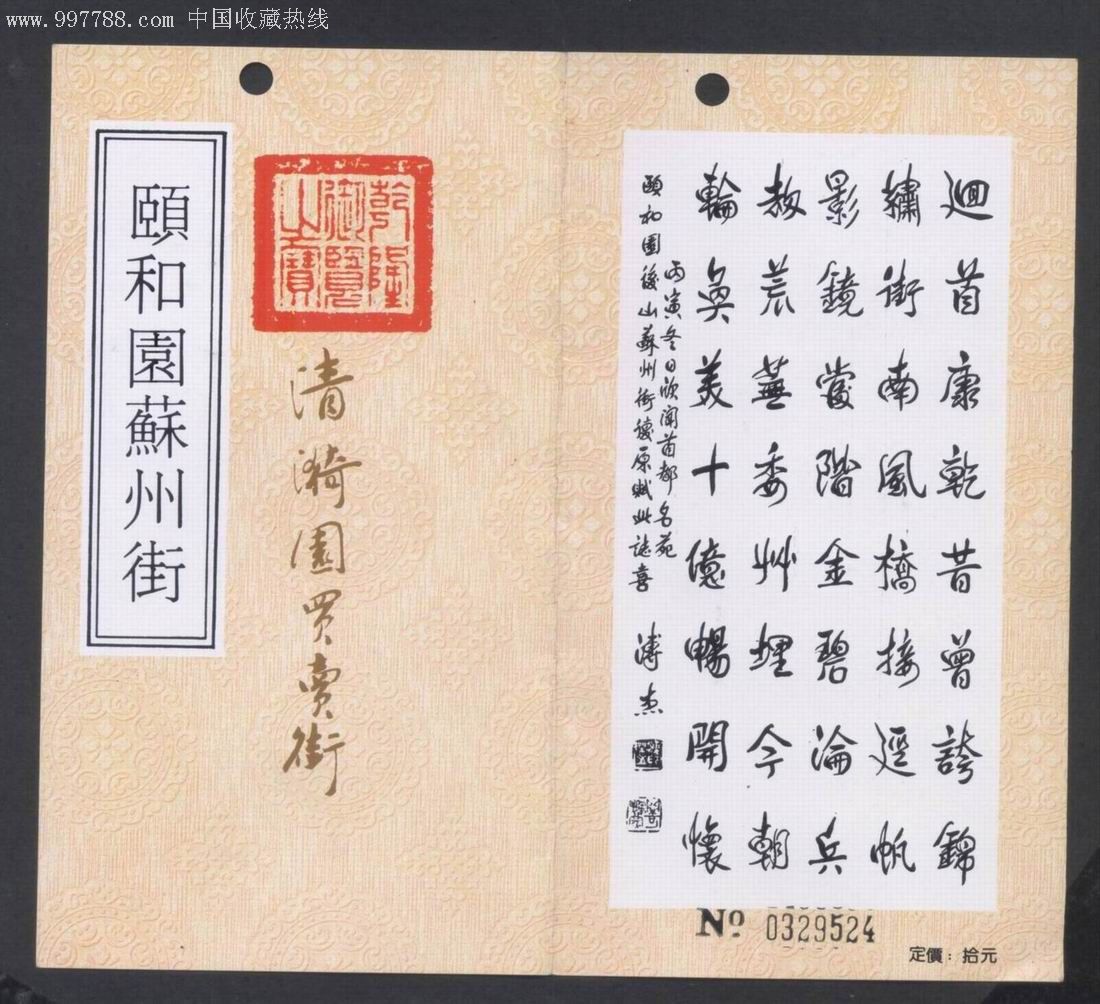 www.997788.com 中国收藏热线
頤和園蘇州街
乾隆
御覽
之寶
清漪園買賣街
迴首康乾昔曾誇錦
繡街南風橋接逕帆
影鏡當階金碧淪兵
荒蕪委艸埋今朝
輪奐美十億暢開懷
丙寅冬日欣聞首都名苑
頤和園後山蘇州街復原賦此誌喜 溥杰
No 0329524
定價：拾元